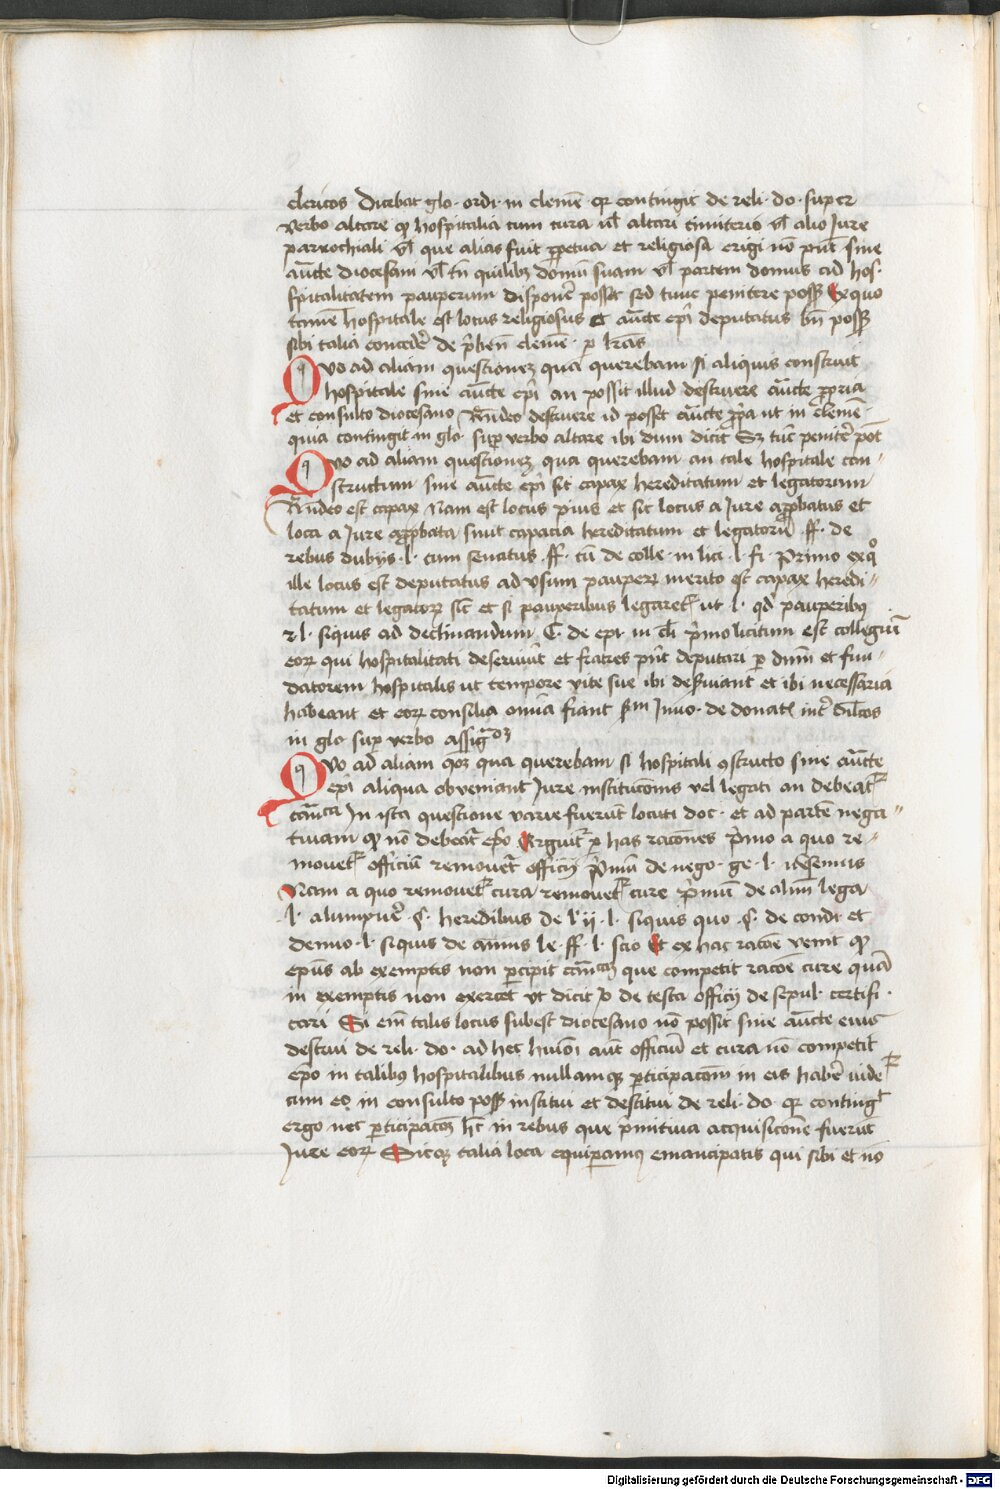 clericos Dicebat glo. ordi. in clemē qr contingit de reli. do. super
verbo altare qp hospitalia cum cura vl altari cimiterio vl alio Jure
parrochiali vl que alias fuit ppetua et religiosa erigi nō pnt sine
aucte diocesani vl tn quilibz domū suam vl partem domus ad hos-
spitalitatem pauperum disponē posset sed tunc penitere possz Exquo
tamē hospitale est locus religiosus et aucte epi deputatus bn possz
sibi talia concedē de pben clemē. p lras
Quo ad aliam questionez qua querebam si aliquis construit
hospitale sine aucte epi an possit illud destruere aucte ppria
et consulto diocesano Rndeo destruere id posset aucte ppa ut in clemē.
quia contingit in glo. sup verbo altare ibi dum dicit Sz tūc penitē pōt
Quo ad aliam questionez qua querebam an tale hospitale con-
structum sine aucte epi sit capax hereditatum et legatorum
Rndeo est capax Nam est locus pius et sic locus a Jure approbatus et
loca a Jure approbata sunt capacia hereditatum et legatorū ff. de
rebus dubijs. l. cum senatus ff. tū de colle. in lici. l. fi. Primo exqo
ille locus est deputatus ad vsum pauperz merito est capax heredi-
tatum et legatorz sic et si pauperibus legaret ut l. qd pauperibus
et l. siquis ad declinandum C. de epi. in cli pmo licitum est collegiū
eorz qui hospitalitati deseruiūt et fratres pnt deputari p dnm et fun-
datorem hospitalis ut tempore vite sue ibi deseruiant et ibi necessaria
habeant et eorz consilia omnia fiant sm Inno. de donat. int dilcos
in glo sup verbo assig
Quo ad aliam qoz qua querebam si hospitali gstructo sine aucte
epi aliqua obveniant Jure institucionis vel legati an debeat
canca In ista questione varie fuerūt locuti doc. et ad partē nega-
tiuam qp nō debeat epo Arguit p has racones pmo a quo re-
mouet officiū remouet officij pmū de nego. ge. l.
Nam a quo remouet cura remouet cure pmū de alim lega
l. heredibus de l ij. l. siquis quo . de condi. et
demo. l. siquis de annis le. ff. l. scio Et ex hac racoē venit qp
epūs ab exemptis non pcipit que competit racoē cure quā
in exemptis non exercet vt dicit de testa officij de sepul. certifi.
cari Si em talis locus subest diocesano nō possit sine aucte eius
destrui de reli. do. ad hec aut officiū et cura nō competit
epo in talibus hospitalibus nullamqz pticipacom in eis habē vide
cum eo in consulto possz institui et destitui de reli. do. qr conting
ergo nec pticipacoz hz in rebus que pmitiua acquisicone fuerūt
Jure eorz Sicqz talia loca equiparamus emancipatis qui sibi et nō
Digitalisierung gefördert durch die Deutsche Forschungsgemeinschaft - DFG